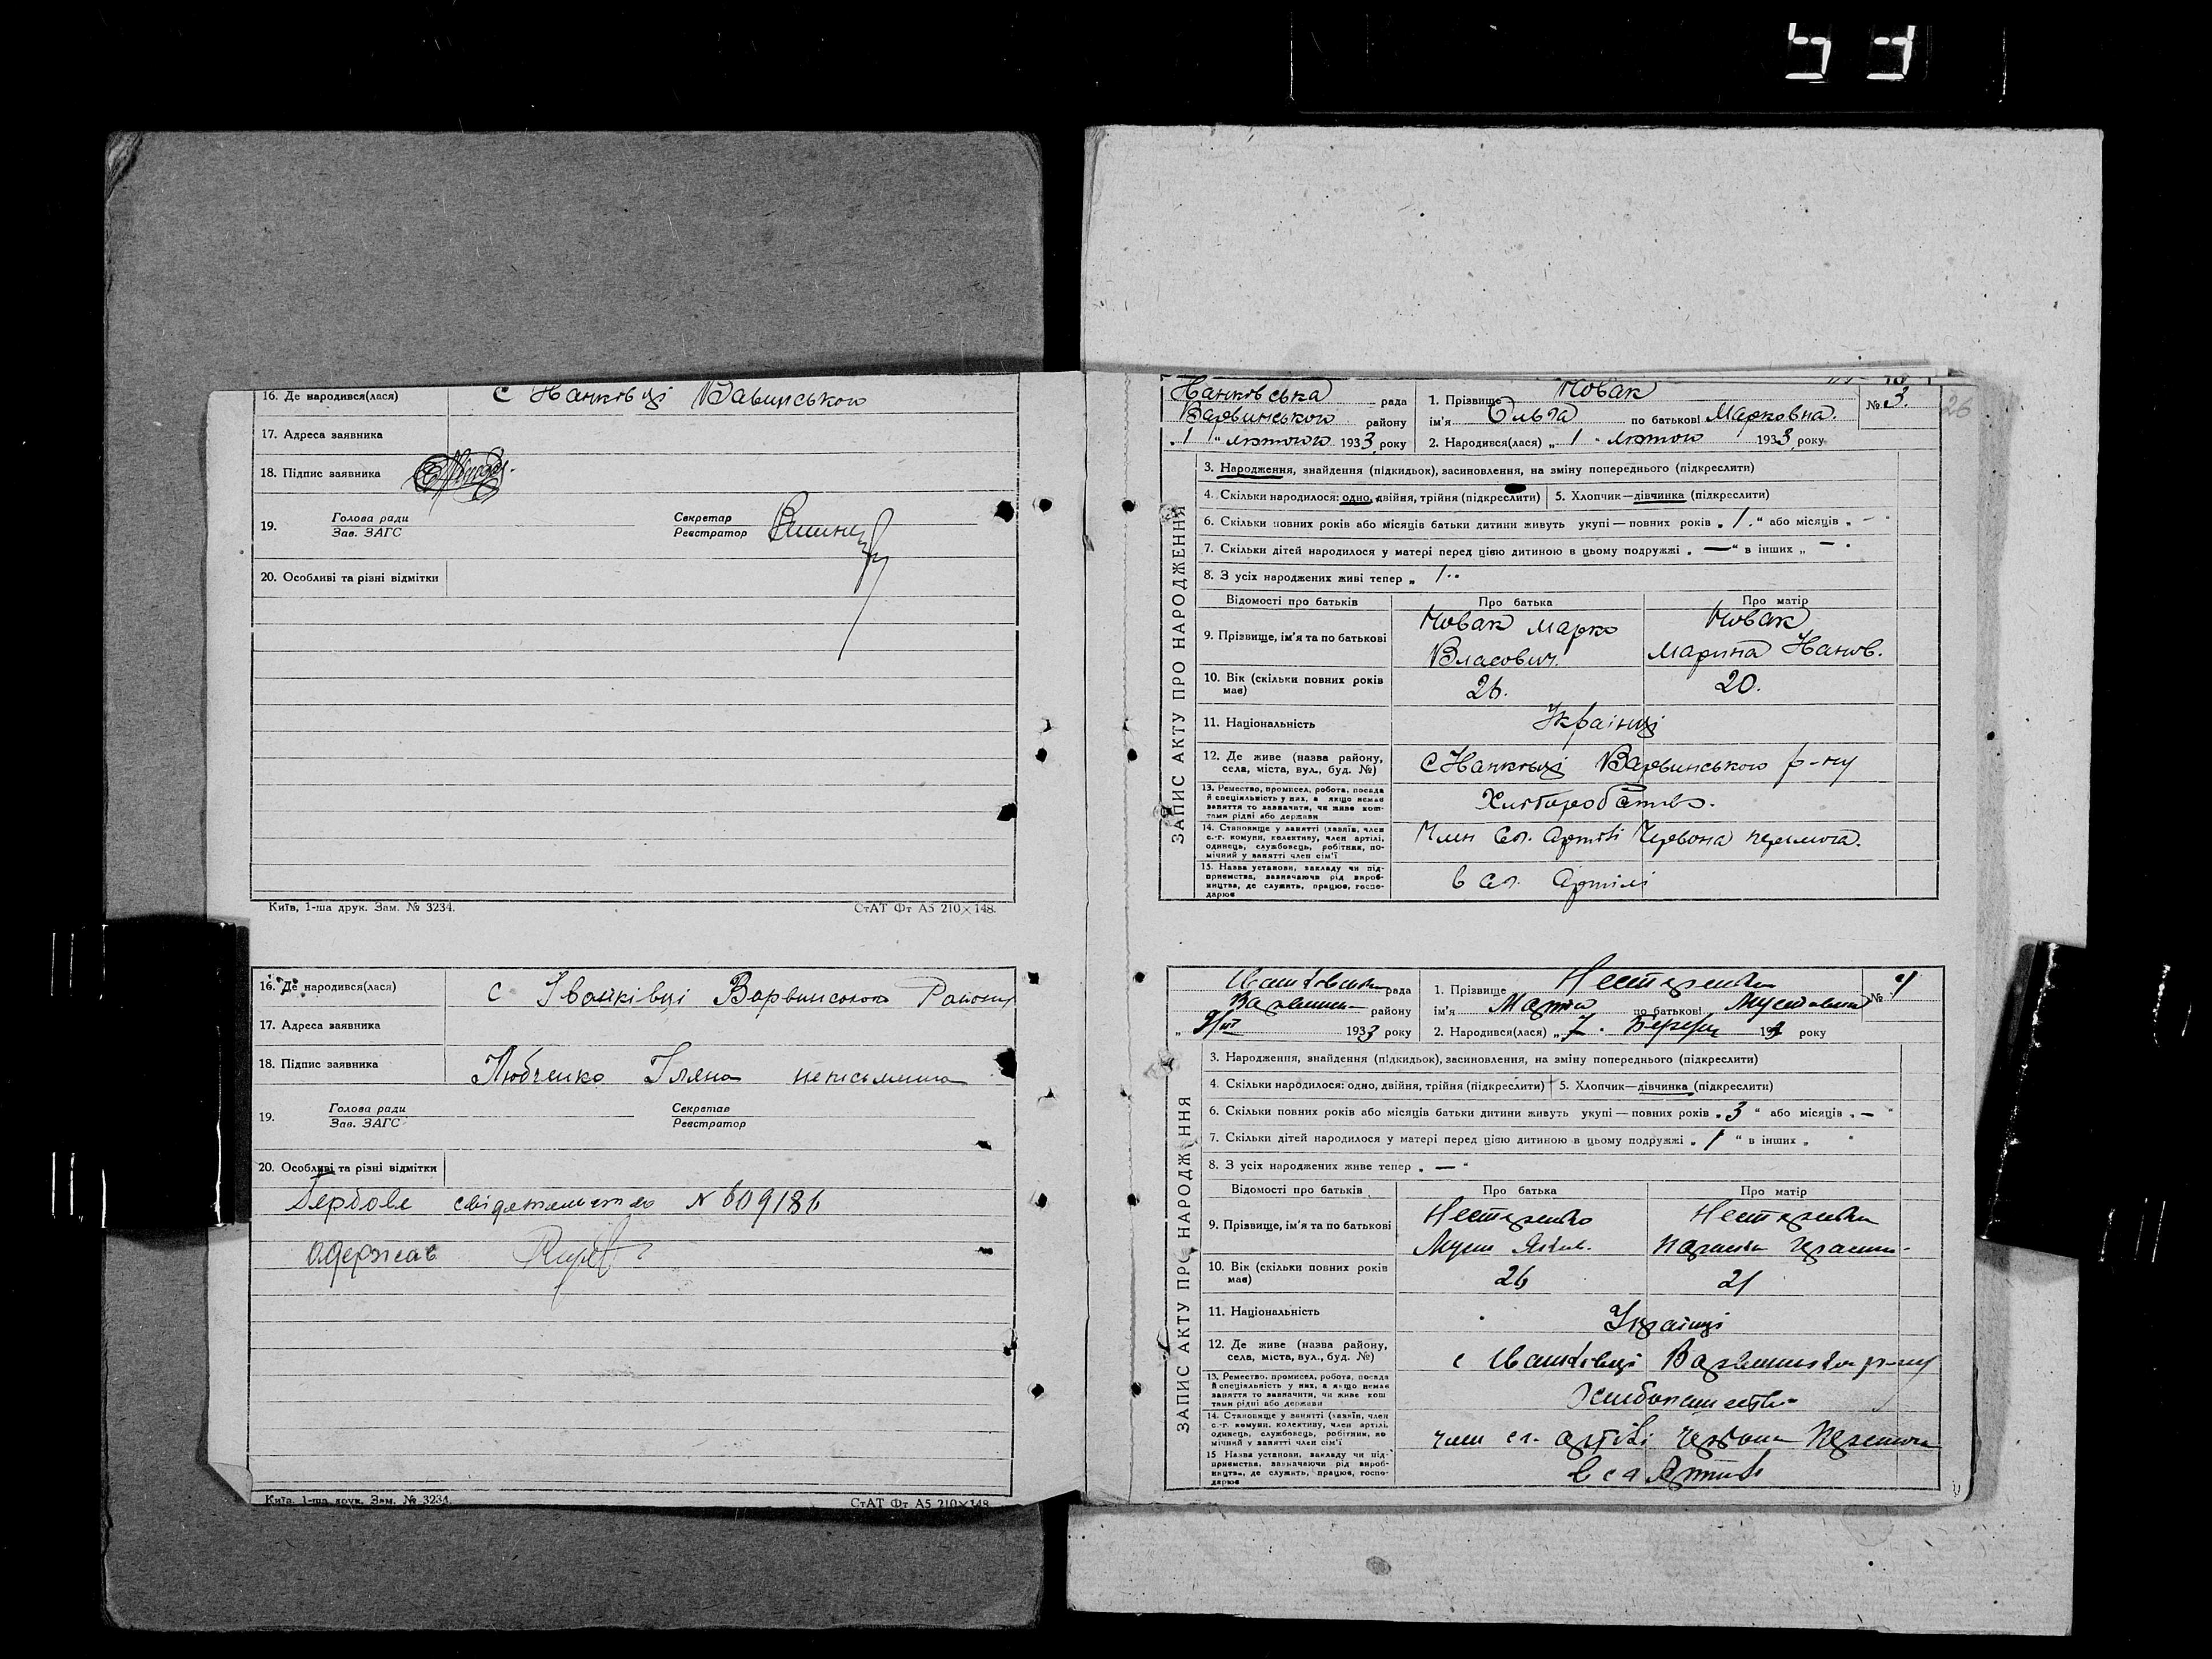 16. Де народився(лася)
17. Адреса заявника
18. Підпис заявника
19. Голова ради Секретар
Зав. ЗАГС Реєстратор
20. Особливі та різні відмітки
Київ, 1-ша друк. Зам. № 3234. СтАТ Фт А5 210×148.
16. Де народився(лася) с Іванківці Варвинського Району
17. Адреса заявника
18. Підпис заявника Любченко неписьменна
19. Голова ради Секретар
Зав. ЗАГС Реєстратор
20. Особливі та різні відмітки
Гербове свідетельство N 609186
одержав
Київ, 1-ша друк. Зам. № 3234. СтАТ Фт А5 210×148
рада 1. Прізвище Новак № 3. 26
Варвинського району ім'я Ольга по батькові Марковна.
„ 1 " лютого 1933 року 2. Народився(лася) „ 1 " лютого 1933 року
ЗАПИС АКТУ ПРО НАРОДЖЕННЯ
3. Народження, знайдення (підкидьок), засиновлення, на зміну попереднього (підкреслити)
4. Скільки народилося: одно, двійня, трійня (підкреслити) 5. Хлопчик—дівчинка (підкреслити)
6. Скільки повних років або місяців батьки дитини живуть укупі — повних років „ 1. " або місяців „ — "
7. Скільки дітей народилося у матері перед цією дитиною в цьому подружжі „ — " в інших „ — "
8. З усіх народжених живі тепер „ 1 "
Відомості про батьків Про батька Про матір
9. Прізвище, ім'я та по батькові Новак Марко Новак
Власович. Марина
10. Вік (скільки повних років 26. 20.
має)
11. Національність Українці
12. Де живе (назва району, Варвинського р-ну
села, міста, вул., буд. №)
13. Ремество, промисел, робота, посада
й спеціяльність у них, а якщо немає
заняття то зазначити, чи живе кош-
тами рідні або держави
14. Становище у занятті (хазяїн, член Член Артілі Червона перемога.
с.-г. комуни, колективу, член артілі,
одинець, службовець, робітник, по-
мічний у занятті член сім'ї
15. Назва установи, закладу чи під- в Артілі
приємства, зазначаючи рід вироб-
ництва, де служить, працює, госпо-
дарює
рада 1. Прізвище Нестеренко №
району ім'я по батькові
„ 9/III 1933 року 2. Народився(лася) „ 7 " року
ЗАПИС АКТУ ПРО НАРОДЖЕННЯ
3. Народження, знайдення (підкидьок), засиновлення, на зміну попереднього (підкреслити)
4. Скільки народилося: одно, двійня, трійня (підкреслити) 5. Хлопчик—дівчинка (підкреслити)
6. Скільки повних років або місяців батьки дитини живуть укупі — повних років „ 3 " або місяців „ — "
7. Скільки дітей народилося у матері перед цією дитиною в цьому подружжі „ 1 " в інших „ "
8. З усіх народжених живе тепер „ — "
Відомості про батьків Про батька Про матір
9. Прізвище, ім'я та по батькові Нестеренко Нестеренко
10. Вік (скільки повних років 26 21
має)
11. Національність Українці
12. Де живе (назва району, с Іванківці
села, міста, вул., буд. №)
13. Ремество, промисел, робота, посада
й спеціяльність у них, а якщо немає
заняття то зазначити, чи живе кош
тами рідні або держави
14. Становище у занятті (хазяїн, член член артілі Червона Перемога
с.-г. комуни, колективу, член артілі,
одинець, службовець, робітник, по
мічний у занятті член сім'ї
15 Назва установи, закладу чи під-
приємства, зазначаючи рід вироб-
ництва, де служить, працює, госпо-
дарює